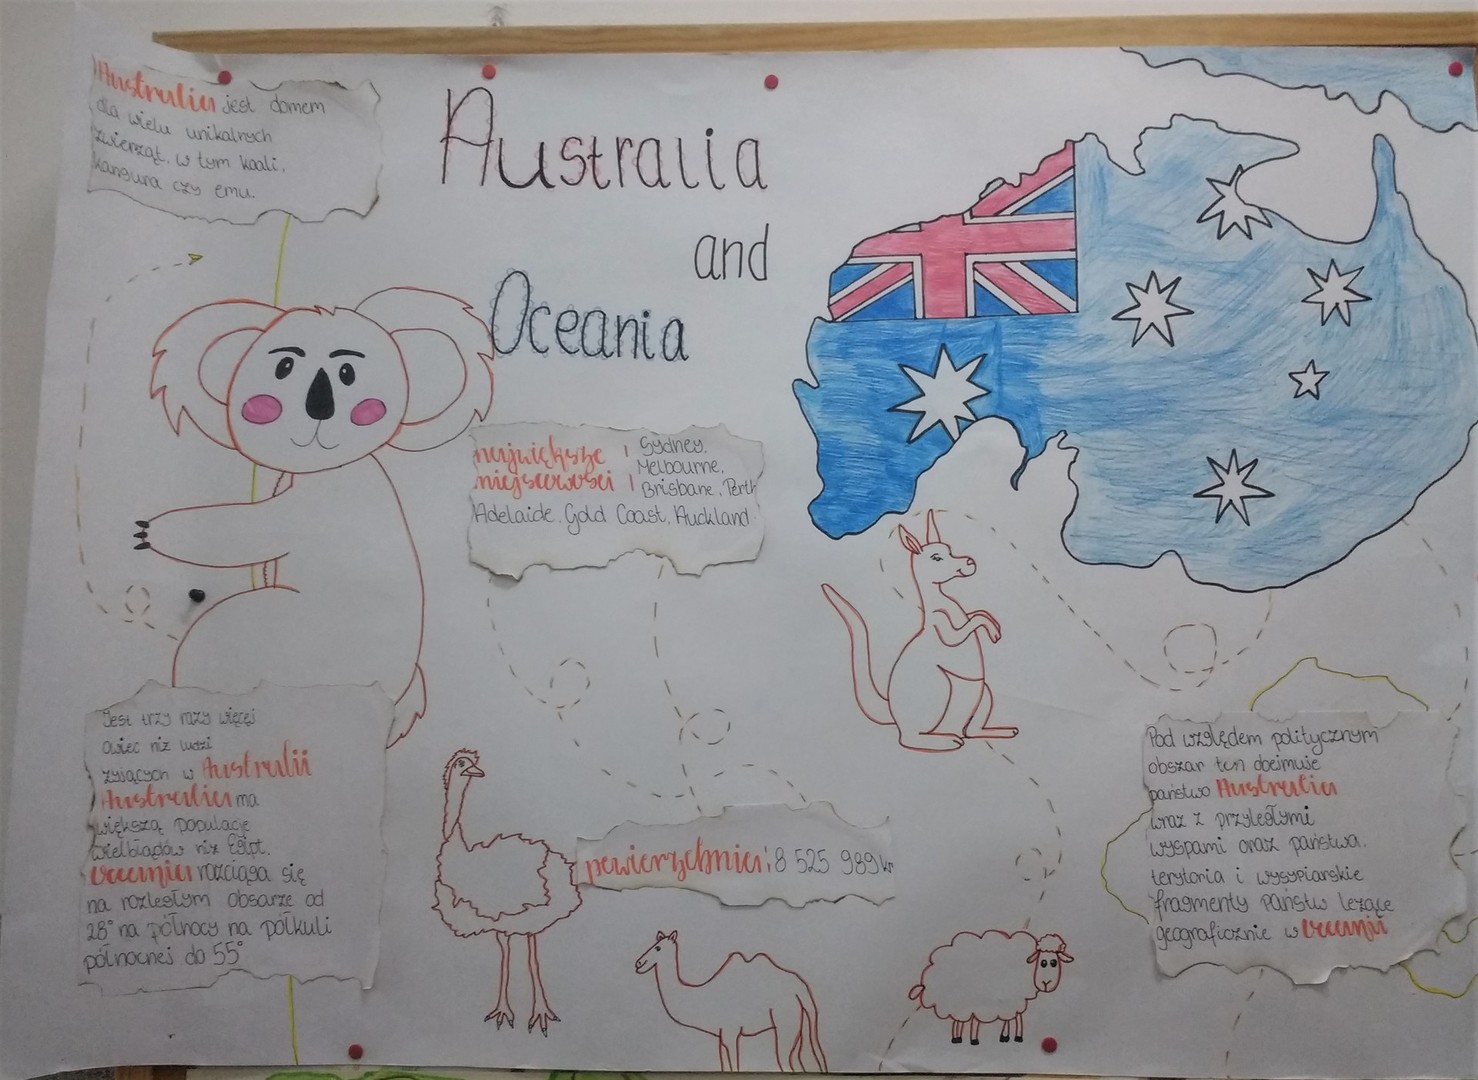 Australia jest domem
dla wielu unikalnych
zwierząt, w tym koali,
kangura czy emu.
Australia
and
Oceania
największe
miejscowości
Sydney,
Melbourne,
Brisbane, Perth
Adelaide, Gold Coast, Auckland
Jest trzy razy więcej
owiec niż ludzi
żyjących w Australii
Australia ma
większą populację
wielbłądów niż Egipt.
Oceania rozciąga się
na rozległym obsarze od
28° na północy na półkuli
północnej do 55°
powierzchnia: 8 525 989 k
Pod względem politycznym
obszar ten obejmuje
państwo Australia
wraz z przyległymi
wyspami oraz państwa,
terytoria i wysypiarskie
fragmenty państw leżące
geograficznie w Oceanii